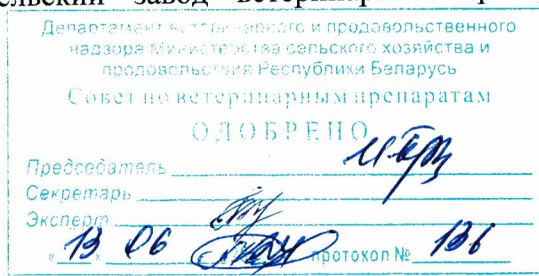 ельский завод ветеринар
Департамент ветеринарного и продовольственного
надзора Министерства сельского хозяйства и
продовольствия Республики Беларусь
Совет по ветеринарным препаратам
ОДОБРЕНО
Председатель
Секретарь
Эксперт
" 13 " 06 протокол № 136